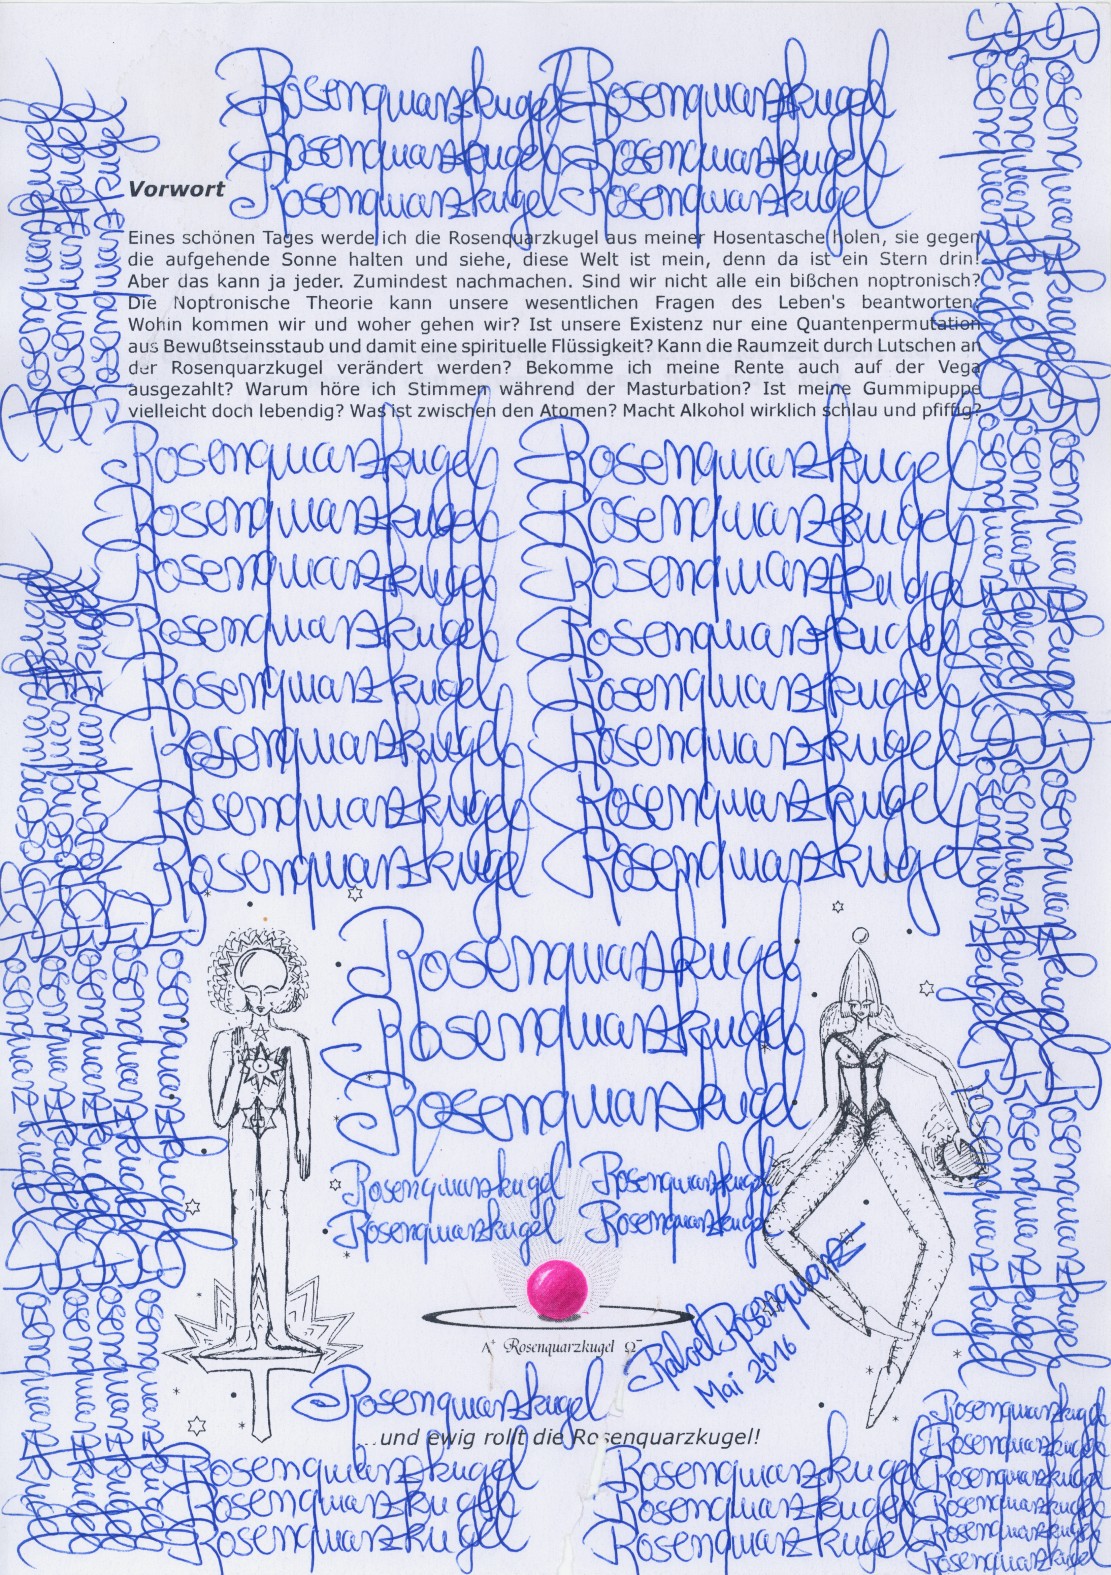 Rosenquarzkugel Rosenquarzkugel
Rosenquarzkugel Rosenquarzkugel
Rosenquarzkugel Rosenquarzkugel
Vorwort
Eines schönen Tages werde ich die Rosenquarzkugel aus meiner Hosentasche holen, sie gegen
die aufgehende Sonne halten und siehe, diese Welt ist mein, denn da ist ein Stern drin!
Aber das kann ja jeder. Zumindest nachmachen. Sind wir nicht alle ein bißchen noptronisch?
Die Noptronische Theorie kann unsere wesentlichen Fragen des Leben's beantworten:
Wohin kommen wir und woher gehen wir? Ist unsere Existenz nur eine Quantenpermutation
aus Bewußtseinsstaub und damit eine spirituelle Flüssigkeit? Kann die Raumzeit durch Lutschen an
der Rosenquarzkugel verändert werden? Bekomme ich meine Rente auch auf der Vega
ausgezahlt? Warum höre ich Stimmen während der Masturbation? Ist meine Gummipuppe
vielleicht doch lebendig? Was ist zwischen den Atomen? Macht Alkohol wirklich schlau und pfiffig?
Rosenquarzkugel Rosenquarzkugel
Rosenquarzkugel Rosenquarzkugel
Rosenquarzkugel Rosenquarzkugel
Rosenquarzkugel Rosenquarzkugel
Rosenquarzkugel Rosenquarzkugel
Rosenquarzkugel Rosenquarzkugel
Rosenquarzkugel Rosenquarzkugel
Rosenquarzkugel Rosenquarzkugel
Rosenquarzkugel
Rosenquarzkugel
Rosenquarzkugel
Rosenquarzkugel Rosenquarzkugel
Rosenquarzkugel Rosenquarzkugel
Λ⁺ Rosenquarzkugel Ω⁻
Rafael Rosenquarz
Mai 2016
Rosenquarzkugel
...und ewig rollt die Rosenquarzkugel!
Rosenquarzkugel Rosenquarzkugel
Rosenquarzkugel Rosenquarzkugel
Rosenquarzkugel Rosenquarzkugel
Rosenquarzkugel
Rosenquarzkugel
Rosenquarzkugel
Rosenquarzkugel
Rosenquarzkugel
Rosenquarzkugel
Rosenquarzkugel
Rosenquarzkugel
Rosenquarzkugel
Rosenquarzkugel Rosenquarzkugel Rosenquarzkugel
Rosenquarzkugel Rosenquarzkugel Rosenquarzkugel
Rosenquarzkugel Rosenquarzkugel Rosenquarzkugel
Rosenquarzkugel Rosenquarzkugel
Rosenquarzkugel Rosenquarzkugel Rosenquarzkugel Rosenquarzkugel
Rosenquarzkugel Rosenquarzkugel Rosenquarzkugel Rosenquarzkugel
Rosenquarzkugel Rosenquarzkugel Rosenquarzkugel Rosenquarzkugel